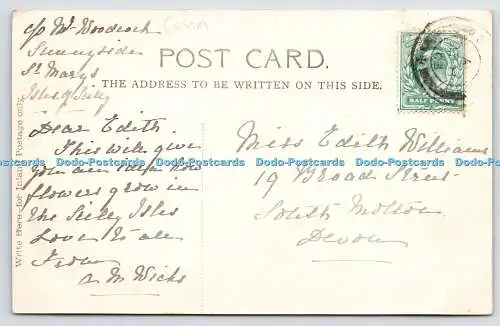 c/o Mr Woodcock
Sunnyside
St Marys
Isles of Scilly
Corn
POST CARD.
THE ADDRESS TO BE WRITTEN ON THIS SIDE.
HALF PENNY
Write Here for Inland Postage only.
Dear Edith
This will give
you an idea how
flowers grow in
the Scilly Isles
Love to all
From
a M Wicks
Miss Edith Williams
19 Broad Street
South Molton
Devon
Dodo-Postcards Dodo-Postcards Dodo-Postcards Dodo-Postcards Dodo-Postcards Dodo-Postcards